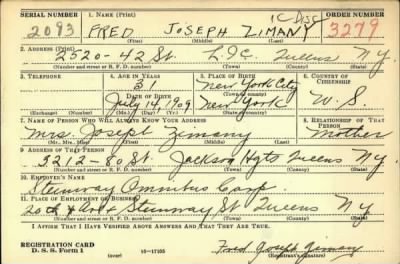 SERIAL NUMBER 1. NAME (Print) ORDER NUMBER
2093 FRED JOSEPH ZIMANY 1C Disc 3279
(First) (Middle) (Last)
2. ADDRESS (Print)
2520-42 St. L.I.C. Queens N.Y.
(Number and street or R. F. D. number) (Town) (County) (State)
3. TELEPHONE 4. AGE IN YEARS 5. PLACE OF BIRTH 6. COUNTRY OF CITIZENSHIP
31 New York City
DATE OF BIRTH (Town or county)
July 14, 1909 New York U.S.
(Exchange) (Number) (Mo.) (Day) (Yr.) (State or country)
7. NAME OF PERSON WHO WILL ALWAYS KNOW YOUR ADDRESS 8. RELATIONSHIP OF THAT PERSON
Mrs. Joseph Zimany Mother
(Mr., Mrs., Miss) (First) (Middle) (Last)
9. ADDRESS OF THAT PERSON
3212-80 St. Jackson Hgts Queens N.Y.
(Number and street or R. F. D. number) (Town) (County) (State)
10. EMPLOYER'S NAME
Steinway Omnibus Corp.
11. PLACE OF EMPLOYMENT OR BUSINESS
20th Ave & Steinway St Queens N.Y.
(Number and street or R. F. D. number) (Town) (County) (State)
I AFFIRM THAT I HAVE VERIFIED ABOVE ANSWERS AND THAT THEY ARE TRUE.
REGISTRATION CARD
D. S. S. Form 1 (over) 16—17105 Fred Joseph Zimany
(Registrant's signature)